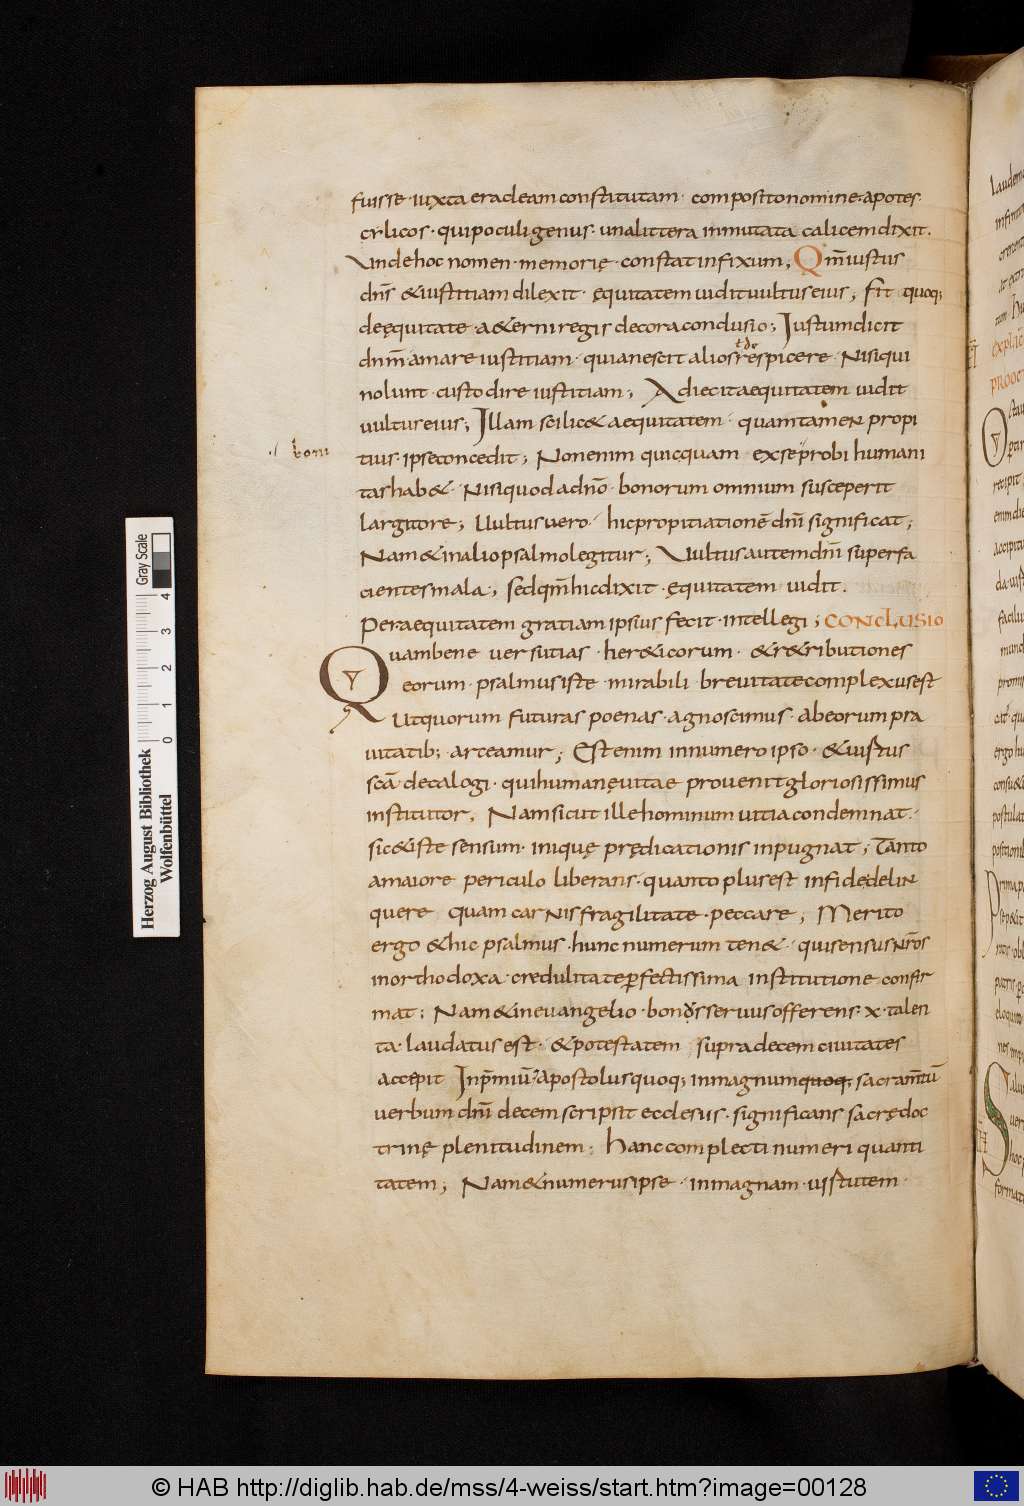 fuisse · iuxta eracleam constitutam · composito nomine · apotes
crlicos · qui poculi genus · una littera inmutata calicem dixit .
Unde hoc nomen · memorię · constat infixum ; Qm̄ iustus
dn̄s & iustitiam dilexit · ęquitatem uidit uultus eius ; fit quoq;
de ęquitate · a&erni regis decora conclusio ; Iustum dicit
dnm̄ amare iustitiam · quia nescit alios respicere · Nisi qui
nolunt custodire iustitiam ; Adiecit aequitatem uidit
uultus eius ; Illam scilic& aequitatem · quam tamen propi
tius · ipse concedit ; Non enim quicquam ex se probi humani
boni
tas hab& · Nisi quod a dn̄o · bonorum omnium susceperit
largitore ; Uultus uero · hic propitiationē dn̄i significat ;
Nam & in alio psalmo legitur ; Uultus autem dn̄i super fa
cientes mala ; sed qm̄ hic dixit · ęquitatem uidit .
Per aequitatem gratiam ipsius fecit · intellegi ; CONCLUSIO
Quam bene uersutias · her&icorum · & r&ributiones
eorum · psalmus iste · mirabili · breuitate complexus est
Ut quorum futuras poenas · agnoscimus · ab eorum pra
uitatib; · arceamur ; Est enim in numero ipso · & uirtus
sc̄a decalogi · qui humanę uitae prouenit gloriosissimus
institutor , Nam sicut ille hominum uitia condemnat ·
sic & iste sensum · iniquę prędicationis inpugnat ; Tanto
a maiore periculo liberans · quanto plus est in fide delin
quere quam carnis fragilitate · peccare ; Merito
ergo & hic psalmus · hunc numerum ten& · qui sensus nr̄os
in orthodoxa · credulitate perfectissima institutione confir
mat : Nam & in euangelio · bonus seruus offerens · x · talen
ta · laudatus est · & potestatem supra decem ciuitates
accepit In pmiū apostolus quoq; in magnum quoq; sacramtū
uerbum dn̄i decem scripsit ecclesiis · significans sacrę doc
trinę plenitudinem · hanc complecti numeri quanti
tatem ; Nam & numerus ipse · in magnam · uirtutem ·
Gray Scale
0 1 2 3 4
Herzog August Bibliothek
Wolfenbüttel
© HAB http://diglib.hab.de/mss/4-weiss/start.htm?image=00128